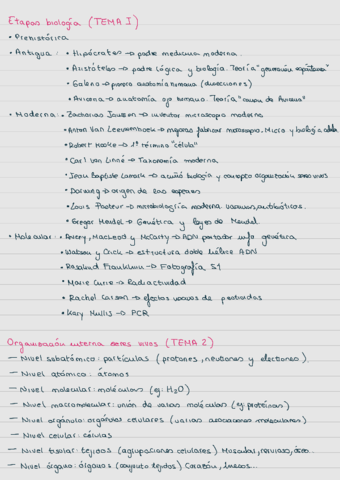 Etapas biología (TEMA I)
• Prehistórica
• Antigua: • Hipócrates → padre medicina moderna.
• Aristóteles → padre lógica y biología. Teoría "generación espontánea"
• Galeno → primera anatomía humana (disecciones)
• Avicena → anatomía ojo humano. Teoría "canon de Avicena"
• Moderna: • Zacharias Janssen → inventor microscopio moderno
• Anton Van Leeuwenhoek → mejoras fabricar microscopio. Micro y biología celular
• Robert Hooke → 1º término "célula"
• Carl van Linné → Taxonomía moderna
• Jean Baptiste Lamark → acuñó biología y concepto organización seres vivos
• Darwing → origen de las especies
• Louis Pasteur → microbiología moderna vacunas, antibióticos.
• Gregor Mendel → Genética y leyes de Mendel.
• Molecular: • Avery, MacLeod y McCarty → ADN portador info genética
• Watson y Crick → estructura doble hélice ADN
• Rosalind Franklin → Fotografía 51
• Marie Curie → Radiactividad
• Rachel Carson → efectos nocivos de pesticidas
• Kary Mullis → PCR
Organización interna seres vivos (TEMA 2)
— Nivel subatómico: partículas (protones, neutrones y electrones)
— Nivel atómico: átomos
— Nivel molecular: moléculas (ej: H₂O)
— Nivel macromolecular: unión de varias moléculas (ej: proteínas)
— Nivel orgánulo: orgánulos celulares (varias asociaciones moleculares)
— Nivel celular: células
— Nivel tisular: tejidos (agrupaciones celulares) Muscular, nervioso, óseo...
— Nivel órgano: órganos (conjunto tejidos) Corazón, huesos...